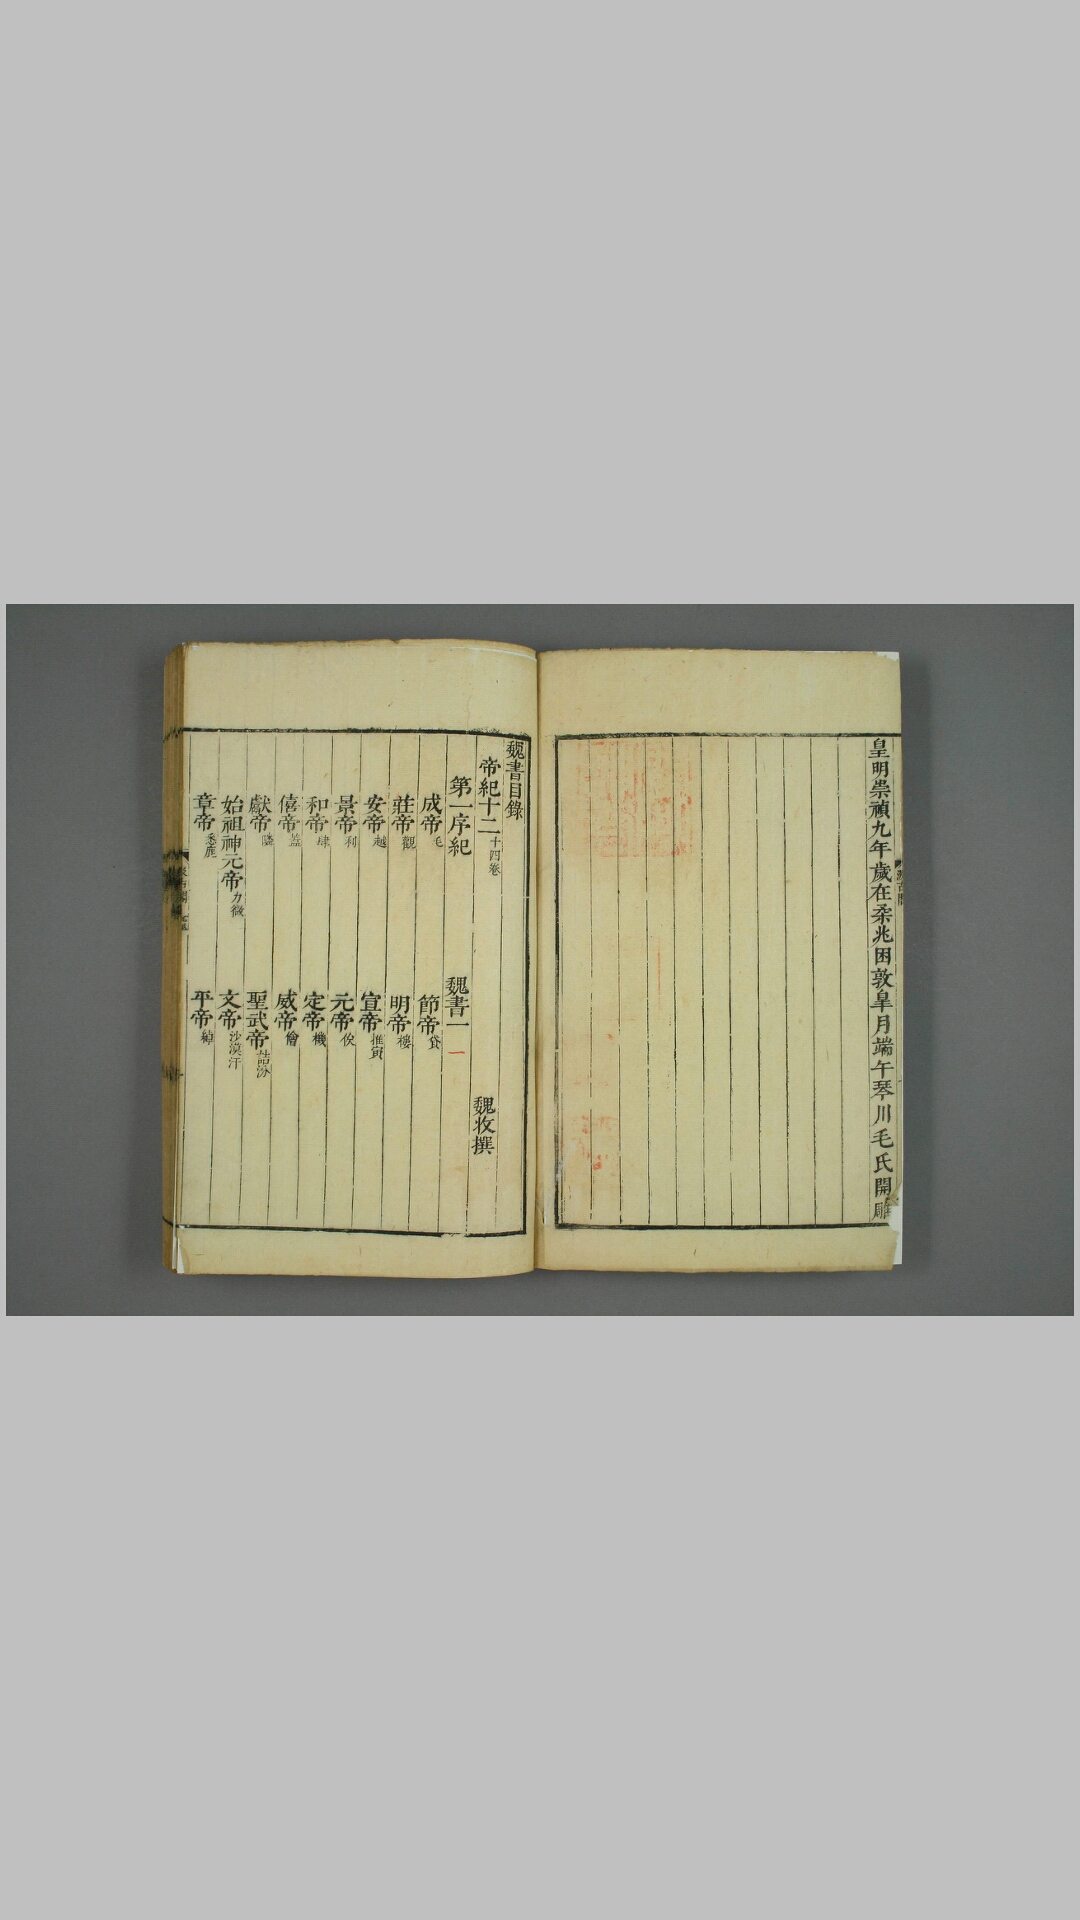 皇明崇禎九年歲在柔兆困敦皐月端午琴川毛氏開雕
魏書目錄
帝紀十二十四卷 魏收撰
第一序紀 魏書一
成帝毛 節帝貸
莊帝觀 明帝樓
安帝越 宣帝推寅
景帝利 元帝俟
和帝肆 定帝機
僖帝蓋 威帝儈
獻帝隣 聖武帝詰汾
始祖神元帝力微 文帝沙漠汗
章帝悉鹿 平帝綽